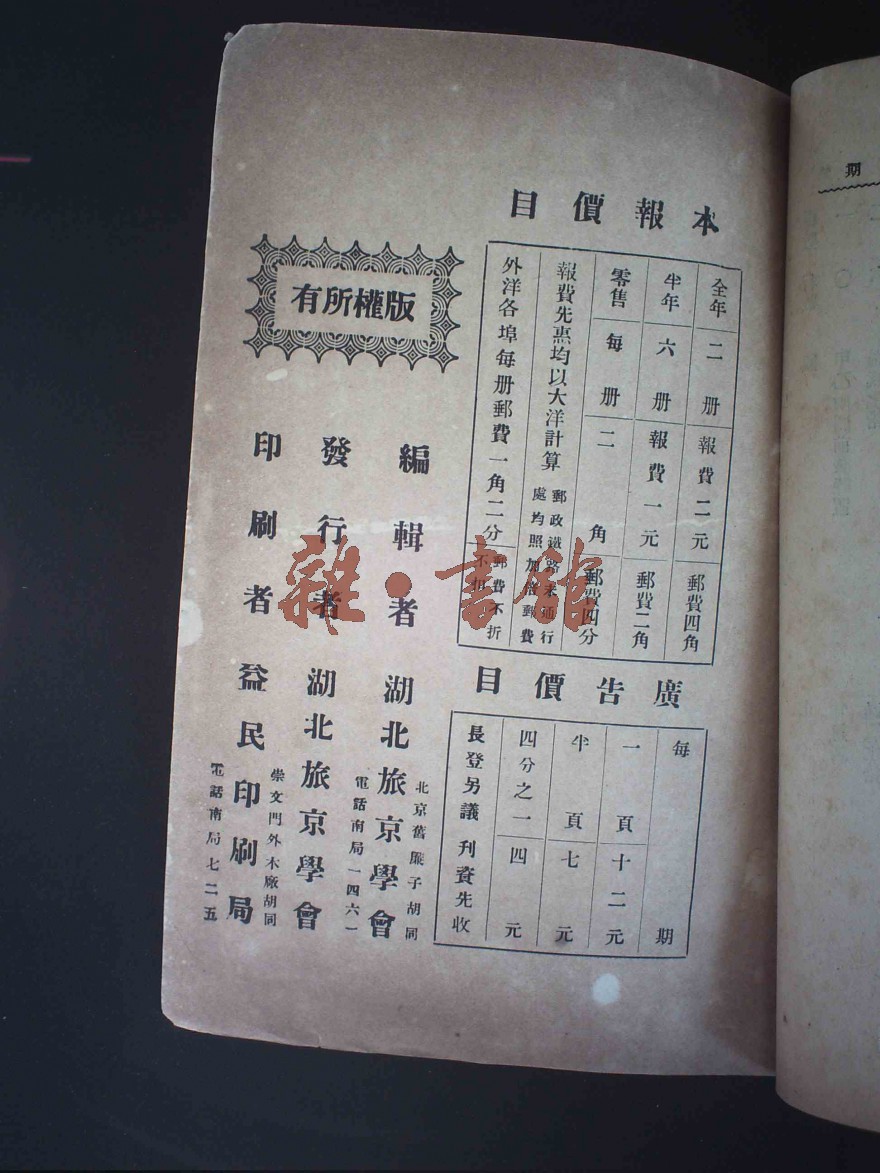 本報價目
全年 二册 報費二元 郵費四角
半年 六册 報費一元 郵費二角
零售 每册 二角 郵費四分
報費先惠均以大洋計算
郵政鐵路未通行
處均照加倍郵費
外洋各埠每册郵費一角二分
郵費不折
不扣
廣告價目
每期
一頁 十二元
半頁 七元
四分之一 四元
長登另議 刊資先收
版權所有
編輯者 湖北旅京學會
北京舊簾子胡同
電話南局一四六一
發行者 湖北旅京學會
印刷者 益民印刷局
崇文門外木廠胡同
電話南局七二五
雜·書館
期